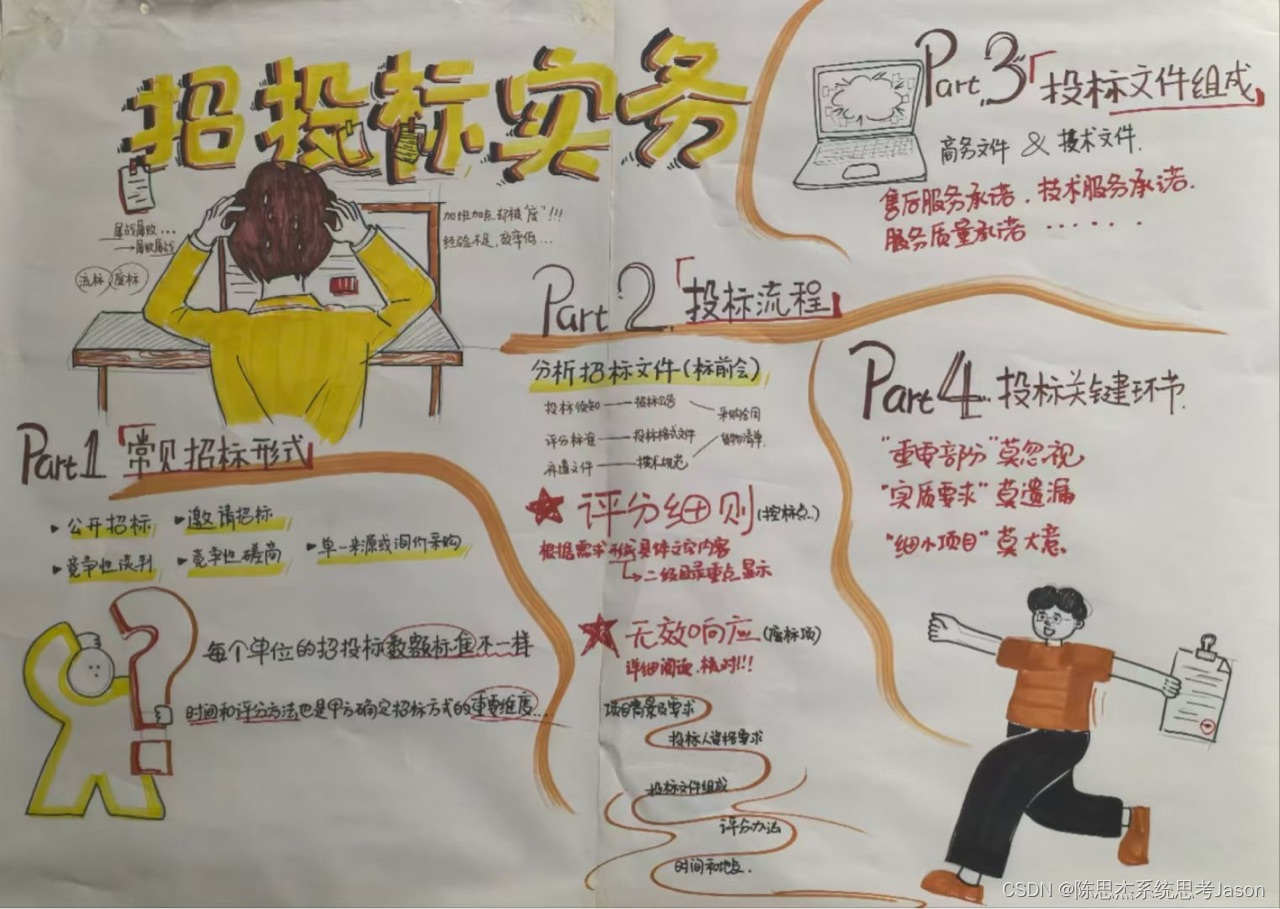 招投标实务
屡战屡败...
→屡败屡战
流标 废标
加班加点却被"废"!!!
经验不足,效率低...
Part 1「常见招标形式」
▸公开招标 ▸邀请招标
▸竞争性谈判 ▸竞争性磋商 ▸单一来源或询价采购
每个单位的招投标数额标准不一样
时间和评分方法也是甲方确定招标方式的重要维度...
Part 2「投标流程」
分析招标文件(标前会)
投标须知 — 招标公告 采购合同
评分标准 — 投标格式文件 货物清单
补遗文件 — 技术规范
★评分细则(控标点..)
根据需求形成具体文字内容
→二级目录重点显示
★无效响应(废标项)
详细阅读.核对!!!
项目背景及要求
投标人资格要求
投标文件组成
评分办法
时间和地点.
Part.3「投标文件组成」
商务文件 & 技术文件.
售后服务承诺.技术服务承诺.
服务质量承诺 ······
Part 4.投标关键环节.
"重要部分"莫忽视
"实质要求"莫遗漏
"细小项目"莫大意.
CSDN @陈思杰系统思考Jason